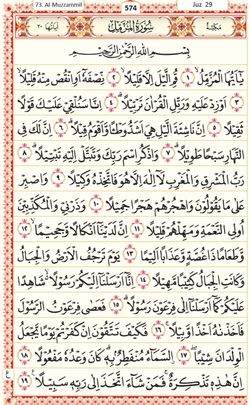 73. Al-Muzzammil
574
Juz 29
مكية
سورة المزمل
آياتها ٢٠
بسم الله الرحمن الرحيم
يٰٓاَيُّهَا الْمُزَّمِّلُ ۙ ١ قُمِ الَّيْلَ اِلَّا قَلِيْلًا ۙ ٢ نِّصْفَهٗٓ اَوِ انْقُصْ مِنْهُ قَلِيْلًا ۙ
٣ اَوْ زِدْ عَلَيْهِ وَرَتِّلِ الْقُرْاٰنَ تَرْتِيْلًا ۗ ٤ اِنَّا سَنُلْقِيْ عَلَيْكَ قَوْلًا
ثَقِيْلًا ٥ اِنَّ نَاشِئَةَ الَّيْلِ هِيَ اَشَدُّ وَطْـًٔا وَّاَقْوَمُ قِيْلًا ۗ ٦ اِنَّ لَكَ فِى
النَّهَارِ سَبْحًا طَوِيْلًا ۗ ٧ وَاذْكُرِ اسْمَ رَبِّكَ وَتَبَتَّلْ اِلَيْهِ تَبْتِيْلًا ۗ ٨
رَبُّ الْمَشْرِقِ وَالْمَغْرِبِ لَآ اِلٰهَ اِلَّا هُوَ فَاتَّخِذْهُ وَكِيْلًا ٩ وَاصْبِرْ
عَلٰى مَا يَقُوْلُوْنَ وَاهْجُرْهُمْ هَجْرًا جَمِيْلًا ١٠ وَذَرْنِيْ وَالْمُكَذِّبِيْنَ
اُولِى النَّعْمَةِ وَمَهِّلْهُمْ قَلِيْلًا ١١ اِنَّ لَدَيْنَآ اَنْكَالًا وَّجَحِيْمًا ۙ ١٢
وَّطَعَامًا ذَا غُصَّةٍ وَّعَذَابًا اَلِيْمًا ١٣ يَوْمَ تَرْجُفُ الْاَرْضُ وَالْجِبَالُ
وَكَانَتِ الْجِبَالُ كَثِيْبًا مَّهِيْلًا ١٤ اِنَّآ اَرْسَلْنَآ اِلَيْكُمْ رَسُوْلًا ۙ شَاهِدًا
عَلَيْكُمْ كَمَآ اَرْسَلْنَآ اِلٰى فِرْعَوْنَ رَسُوْلًا ۗ ١٥ فَعَصٰى فِرْعَوْنُ الرَّسُوْلَ
فَاَخَذْنٰهُ اَخْذًا وَّبِيْلًا ١٦ فَكَيْفَ تَتَّقُوْنَ اِنْ كَفَرْتُمْ يَوْمًا يَّجْعَلُ
الْوِلْدَانَ شِيْبًا ۖ ١٧ السَّمَآءُ مُنْفَطِرٌ بِهٖ ۗ كَانَ وَعْدُهٗ مَفْعُوْلًا ١٨
اِنَّ هٰذِهٖ تَذْكِرَةٌ ۚ فَمَنْ شَآءَ اتَّخَذَ اِلٰى رَبِّهٖ سَبِيْلًا ࣖ ١٩